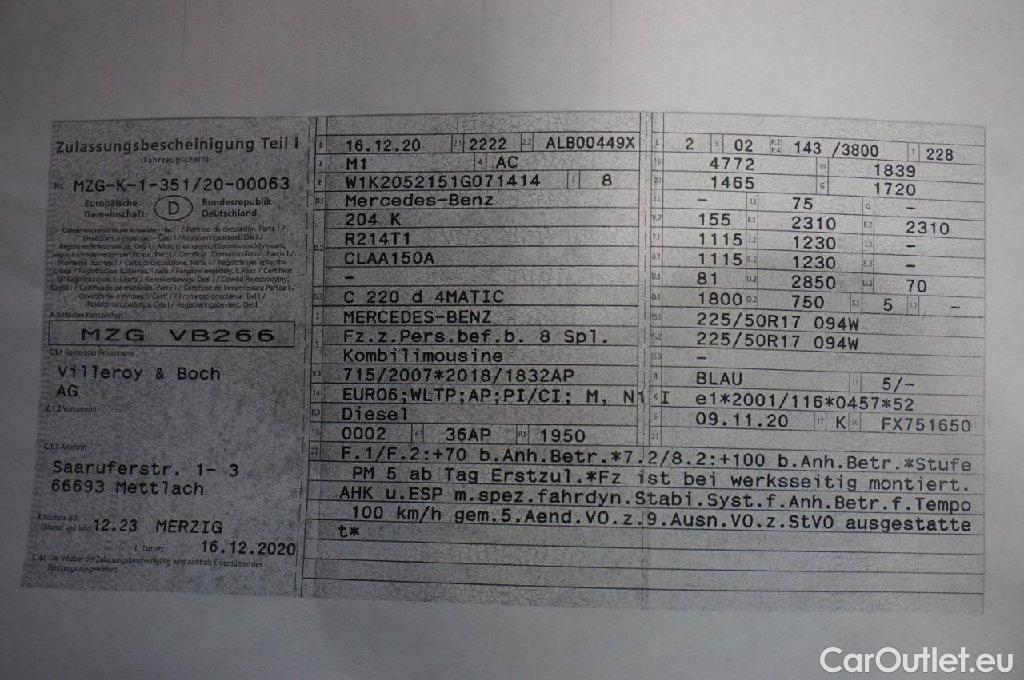 Zulassungsbescheinigung Teil I
(Fahrzeugschein)
Nr. MZG-K-1-351/20-00063
Europäische Gemeinschaft D Bundesrepublik Deutschland
A Amtliches Kennzeichen
MZG VB266
C.1.1 Name oder Firmenname
Villeroy & Boch
AG
C.1.2 Vorname(n)
C.1.3 Anschrift
Saaruferstr. 1- 3
66693 Mettlach
12.23 MERZIG
I Datum: 16.12.2020
C.4c Der Inhaber der Zulassungsbescheinigung wird nicht als Eigentümer des
Fahrzeugs ausgewiesen.
B 16.12.20 2.1 2222 2.2 ALB00449X
J M1 4 AC
E W1K2052151G071414 3 8
D.1 Mercedes-Benz
204 K
D.2 R214T1
CLAA150A
-
D.3 C 220 d 4MATIC
2 MERCEDES-BENZ
5 Fz.z.Pers.bef.b. 8 Spl.
Kombilimousine
V.9 715/2007*2018/1832AP
14 EURO6;WLTP;AP;PI/CI; M, N1 I
P.3 Diesel
10 0002 14.1 36AP P.1 1950
L 2 9 02 P.2 P.4 143 /3800 T 228
18 4772 19 1839
20 1465 G 1720
12 - 13 75 Q -
V.7 155 F.1 2310 F.2 2310
7.1 1115 7.2 1230 7.3 -
8.1 1115 8.2 1230 8.3 -
U.1 81 U.2 2850 U.3 70
O.1 1800 O.2 750 S.1 5 S.2 -
15.1 225/50R17 094W
15.2 225/50R17 094W
15.3 -
R BLAU 11 5/-
K e1*2001/116*0457*52
6 09.11.20 17 K 16 FX751650
21
22 F.1/F.2:+70 b.Anh.Betr.*7.2/8.2:+100 b.Anh.Betr.*Stufe
PM 5 ab Tag Erstzul.*Fz ist bei werksseitig montiert.
AHK u.ESP m.spez.fahrdyn.Stabi.Syst.f.Anh.Betr.f.Tempo
100 km/h gem.5.Aend.VO.z.9.Ausn.VO.z.StVO ausgestatte
t*
CarOutlet.eu